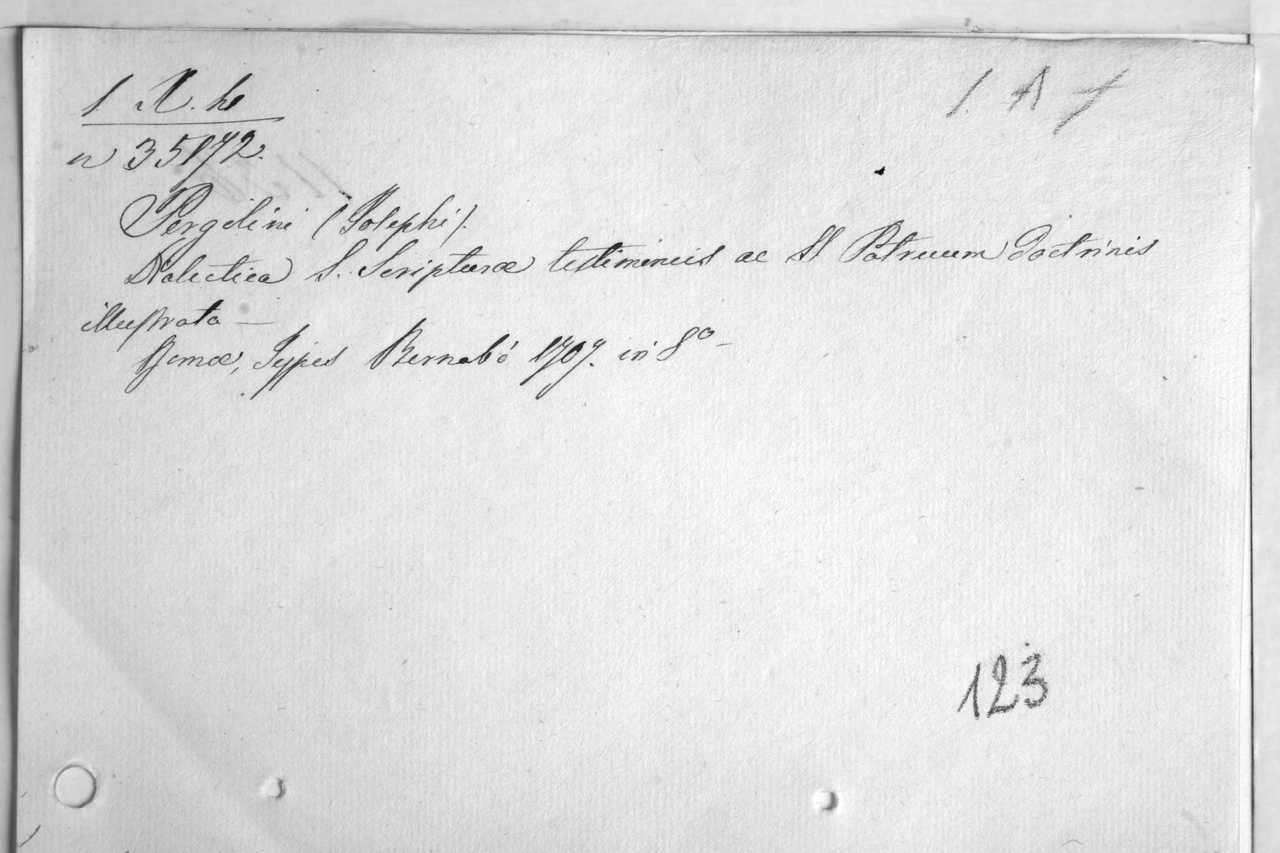 1 X. h
1. A f
n 35172.
Pergilini (Josephi).
Dialectica S. Scripturæ testimoniis ac SS Patruum Doctrinis
illustrata —
Romæ, Typis Bernabò 1707. in 8º —
123